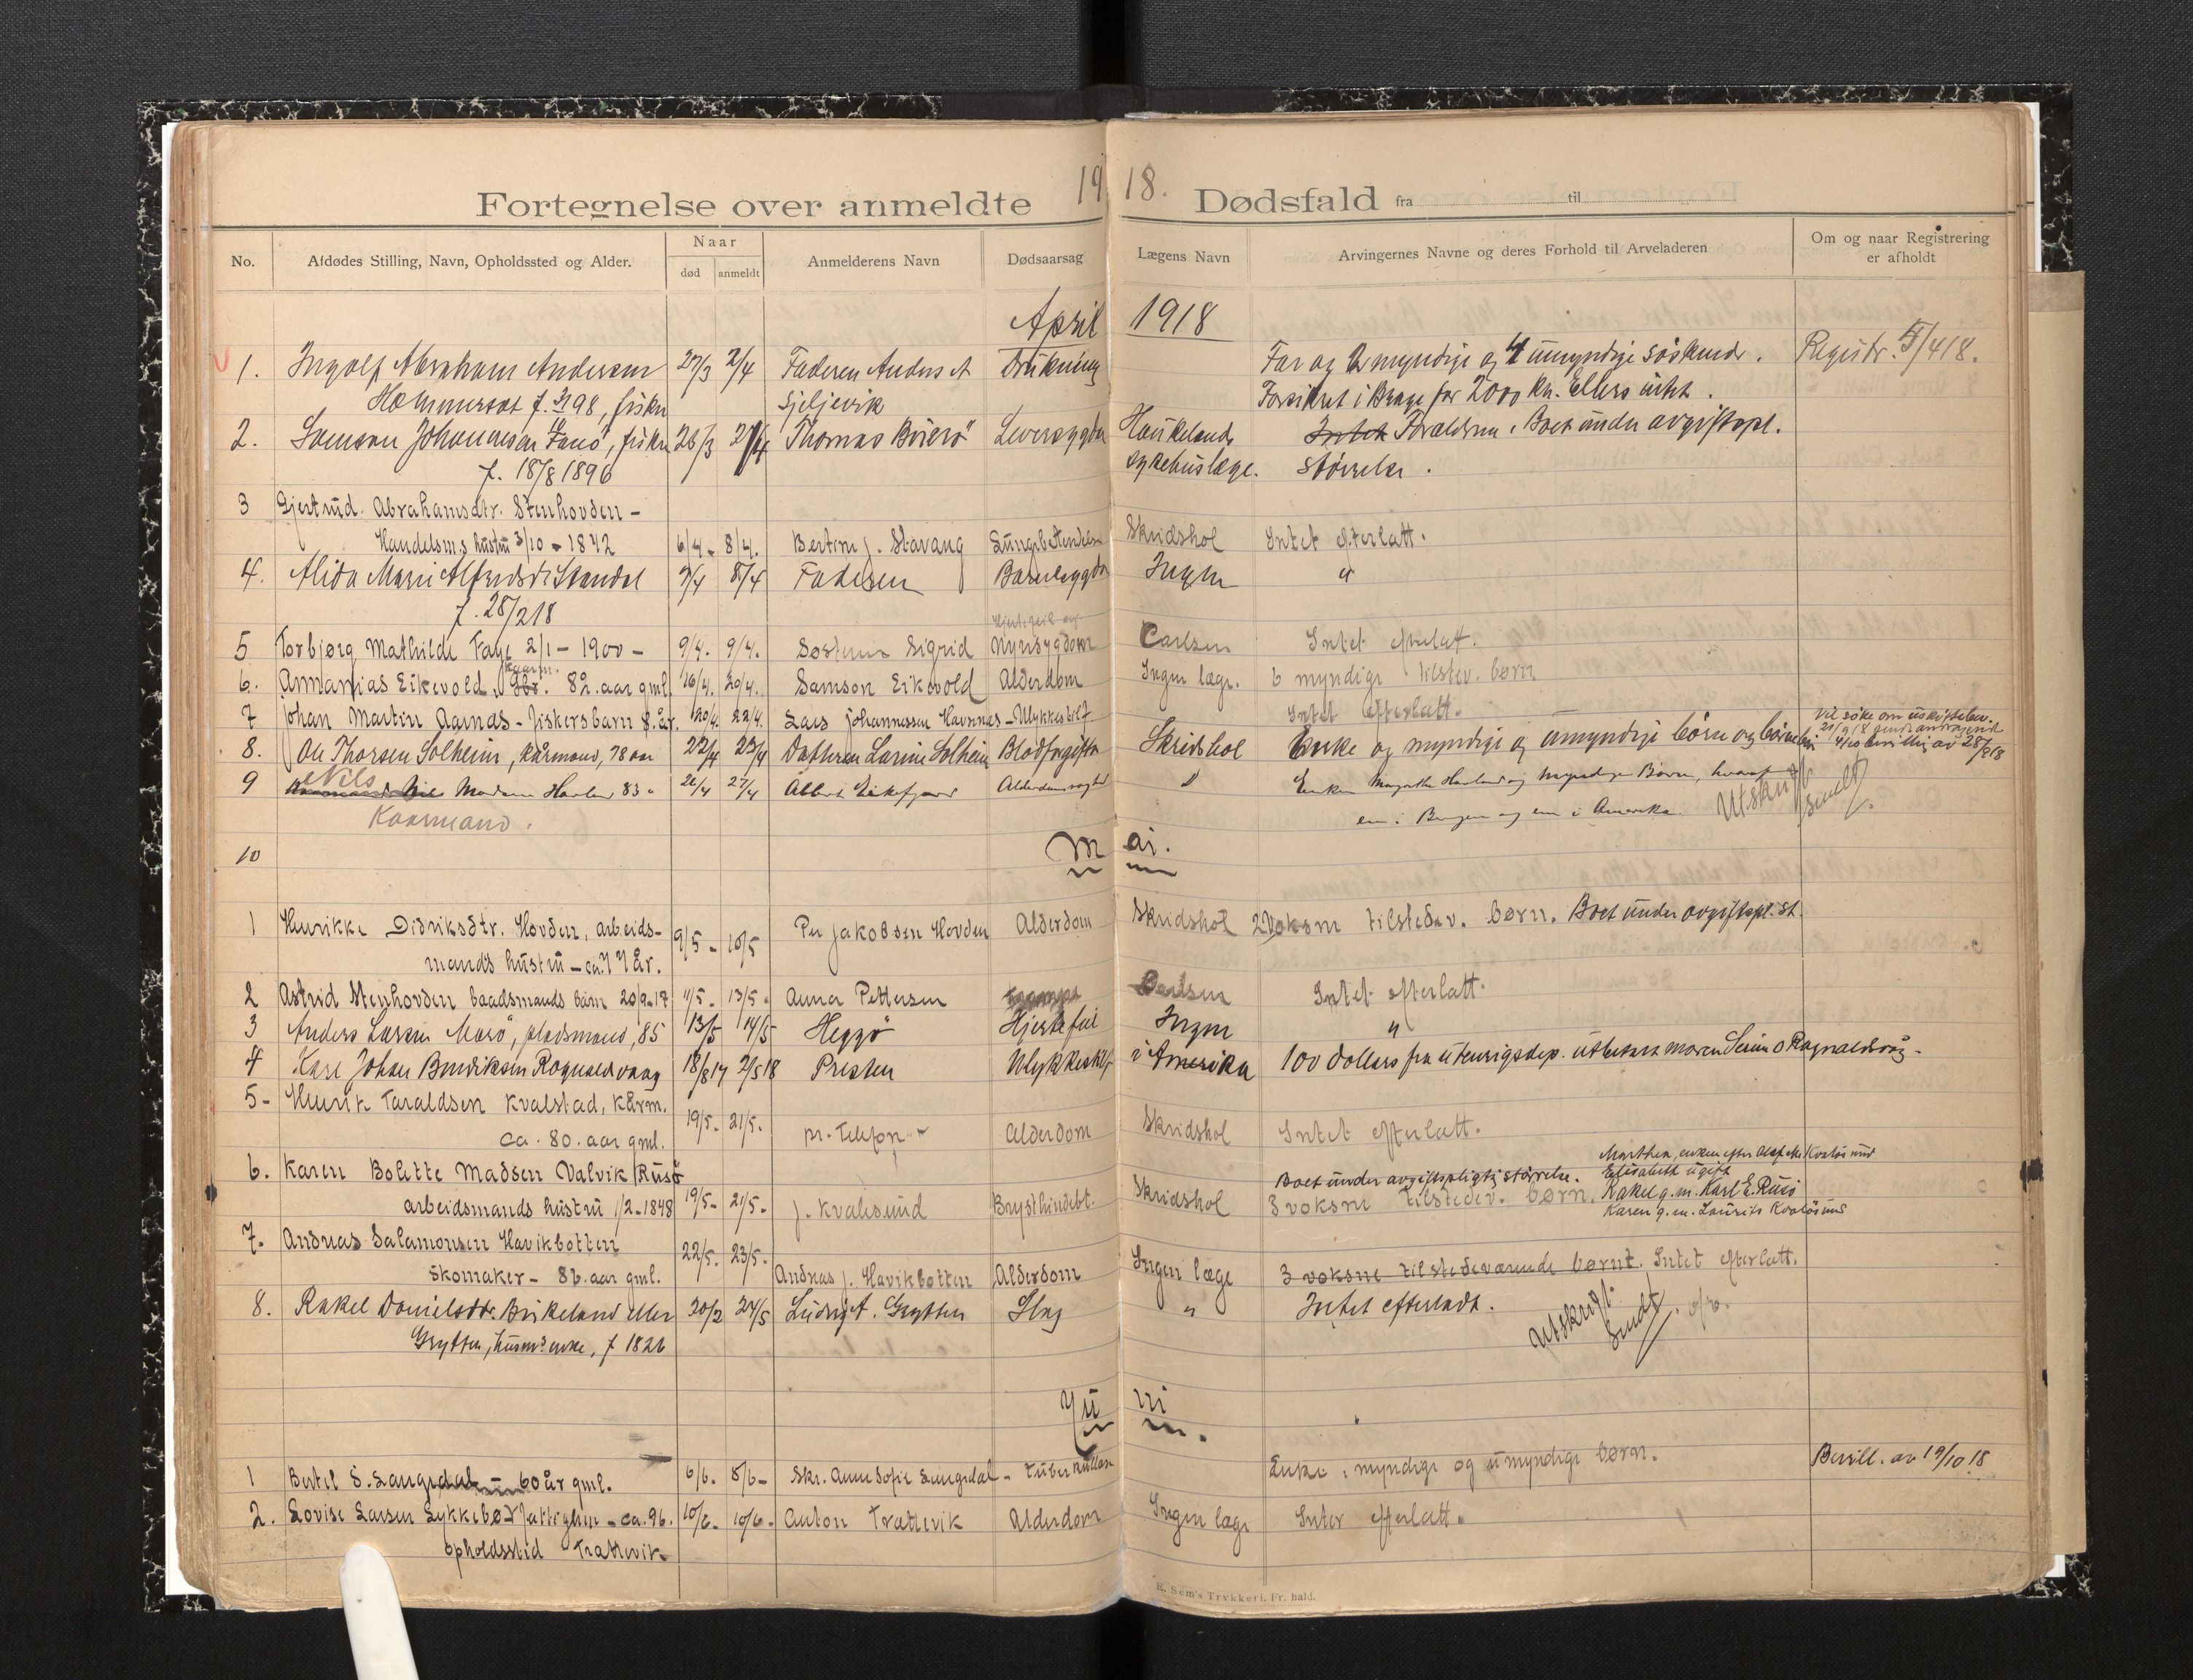 1918.
Fortegnelse over anmeldte Dødsfald fra til
No. Afdødes Stilling, Navn, Opholdssted og Alder. Naar død anmeldt Anmelderens Navn Dødsaarsag Lægens Navn Arvingernes Navne og deres Forhold til Arveladeren Om og naar Registrering er afholdt
April 1918
1. Ingolf Abraham Andersen 27/3 2/4 Faderen Anders A Drukning Far og myndige og 4 umyndige søskende. Registr. 5/4 18.
98, fisker Gjeljevik Forsikret i Brage for 2000 kr. Ellers intet.
2. Samson Johannesen Fanø, fisker 26/3 Thomas Buerø Leversygdom Haukelands Intet Forældrene. Boet under avgiftspl.
f. 18/8 1896 sykehuslæge. størrelse.
3 Gjertrud Abrahamsdtr. Stenhovden -
Handelsm.s hustru 3/10 - 1842 6/4. 8/4. Bertin J. Stavang Lungebetændelse Skridshol Intet efterlatt.
4. Alida Marie Alfredsdtr Standal 7/4 8/4 Faderen Barnesygdom Ingen "
f. 28/2 18
5 Torbjørg Mathilde Fage 2/1 - 1900 - 9/4. 9/4. Søsteren Sigrid Hjertefeil og Nyresygdom Carlsen Intet efterlatt.
6. Annanias Eikevold, kaarm. Gbr. 82. aar gml. 16/4. 20/4. Samson Eikevold Alderdom Ingen læge. 6 myndige tilstev. børn
Intet efterlatt.
7 Johan Martin Aarnæs - fiskersbarn 8. år. 20/4. 22/4. Lars Johannessen Havnnæs - Ulykkestilf.
8. Ole Thorsen Solheim, kårmand, 78 aar 22/4 23/4 Datteren Larine Solheim Blodforgiftn Skridshol Enke og myndige og umyndige børn og børnebørn Vil søke om uskiftebev.
9 Nils Madsen Havler 83 - 26/4 27/4 Albert Eikefjord Alderdomssvaghed " Enken Magrethe Havler og myndige Børn, hvoraf
Kaarmand. en i Bergen og en i Amerika. Utskrift sendt.
10
Mai.
1 Henrikke Didriksdtr. Hovden, arbeids- 9/5 - 10/5 Per Jakobsen Hovden Alderdom Skridshol 2 voksne tilstedev. børn. Boet under avgiftspl. st.
mands hustru - ca. 77 år.
2 Astrid Stenhovden baadsmands barn 20/9-17 11/5 - 13/5 - Anna Pettersen Krampe Carlsen Intet efterlatt.
3 Anders Larsen Marø, pladsmand, 85 13/5 14/5 Heggø Hjertefeil Ingen "
4 Karl Johan Bendiksen Rognaldsvaag 18/8 17 2/5 18 Presten Ulykkestilf i Amerika 100 dollars fra utenrigsdep. utbetalt moren Serine O Rognaldsvåg -
5 - Henrik Taraldsen Kvalstad, kårm. 19/5 - 21/5 - pr. Telefon Alderdom Skridshol Intet efterlatt.
ca. 80. aar gml.
6. Karen Bolette Madsen Valvik (Rusø Boet under avgiftspligtig størrelse. Marthea, enken efter Olaf Kvaløsund
Elisabeth ugift
arbeidsmands hustru 1/2 - 1848 19/5 - 21/5 - J. Kvalsund Brysthindebt. Skridshol 3 voksne tilstedev. børn. Rakel g. m. Karl E. Rusø
Karen g. m. Laurits Kvaløsund
7. Andreas Salamonsen Havikbotten 22/5. 23/5.
Skomaker - 86. aar gml. Andreas J. Havikbotten Alderdom Ingen læge 3 voksne tilstedeværende børnt. Intet efterlatt.
8. Rakel Danielsdtr. Birkeland eller 20/2 24/5 Ludvig A. Grytten Slag " Intet efterladt. Utskrift sendt
Grytten, husm's enke, f 1826
Juni.
1 Bertel S. Langedal - 60 år gml. 6/6. 8/6 - Skr. Anne Sofie Langedal - Tuberkulose Enke, myndige og umyndige børn. Bevill. av 19/10 18
2. Lovise Larsen Lykkebø Fattiglem - ca. 96. 10/6 - 10/6 - Anton Trættevik Alderdom Ingen læge Intet efterlatt.
opholdssted Trættevik
E. Sem's Trykkeri, Fr. hald.